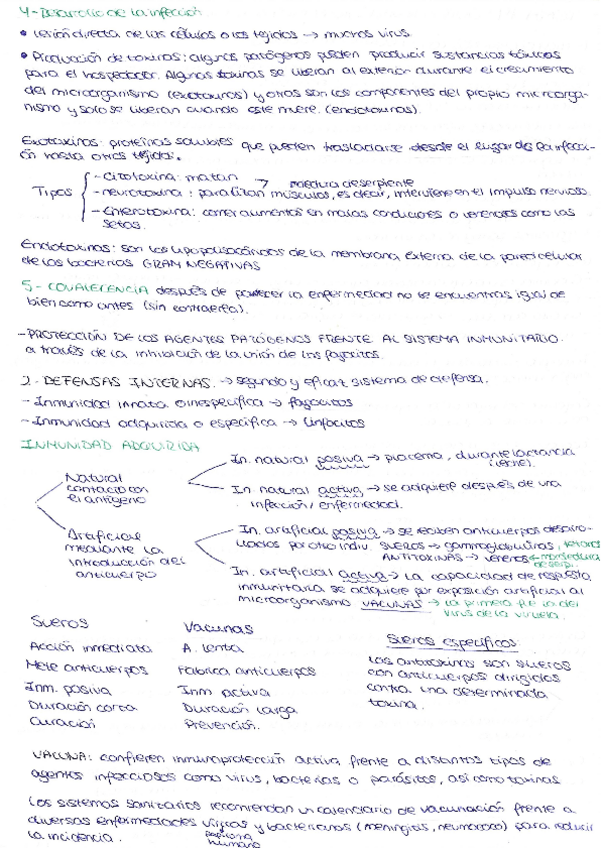 4-Desarrollo de la infección
• Lesión directa de las células o los tejidos → muchos virus
• Producción de toxinas: algunos patógenos pueden producir sustancias tóxicas
para el hospedador. Algunas toxinas se liberan al exterior durante el crecimiento
del microorganismo (exotoxinas) y otras son los componentes del propio microorga-
nismo y solo se liberan cuando este muere. (endotoxinas).
Exotoxinas: proteínas solubles que pueden trasladarse desde el lugar de la infecci-
ón hasta otros tejidos.
Tipos
- Citotoxina: matan
→ mordedura de serpiente
- neurotoxina: paralizan músculos, es decir, interviene en el impulso nervioso.
- Enterotoxina: comer alimentos en malas condiciones o venenos como las
setas.
Endotoxinas: son los lipopolisacáridos de la membrana externa de la pared celular
de las bacterias GRAM NEGATIVAS
5- COVALECENCIA después de padecer la enfermedad no te encuentras igual de
bien como antes (sin contraerla).
-PROTECCIÓN DE LOS AGENTES PATÓGENOS FRENTE AL SISTEMA INMUNITARIO
a través de la inhibición de la unión de los fagocitos.
2- DEFENSAS INTERNAS → segundo y eficaz sistema de defensa.
- Inmunidad innata o inespecífica → fagocitos
- Inmunidad adquirida o específica → linfocitos
INMUNIDAD ADQUIRIDA
Natural
contacto con
el antígeno
In. natural pasiva → placenta, durante lactancia
(leche).
In natural activa → se adquiere después de una
infección/enfermedad.
Artificial
mediante la
introducción del
anticuerpo
In. artificial pasiva → se reciben anticuerpos desarro-
llados por otro indiv. SUEROS → gammaglobulinas,
ANTITOXINAS → venenos
In. artificial activa → La capacidad de respuesta
inmunitaria se adquiere por exposición artificial al
microorganismo VACUNAS → la primera fue la del
virus de la viruela.
Sueros Vacunas
Acción inmediata A. lenta
Mete anticuerpos Fabrica anticuerpos
Inm. pasiva Inm activa
Duración corta Duración larga
Curación Prevención.
Sueros específicos
Las antitoxinas son sueros
con anticuerpos dirigidos
contra una determinada
toxina.
VACUNA: confieren inmunoprotección activa frente a distintos tipos de
agentes infecciosos como virus, bacterias o parásitos, así como toxinas
Los sistemas sanitarios recomiendan un calendario de vacunación frente a
diversas enfermedades víricas y bacterianas (meningitis, neumococo) para reducir
la incidencia. papiloma
humano